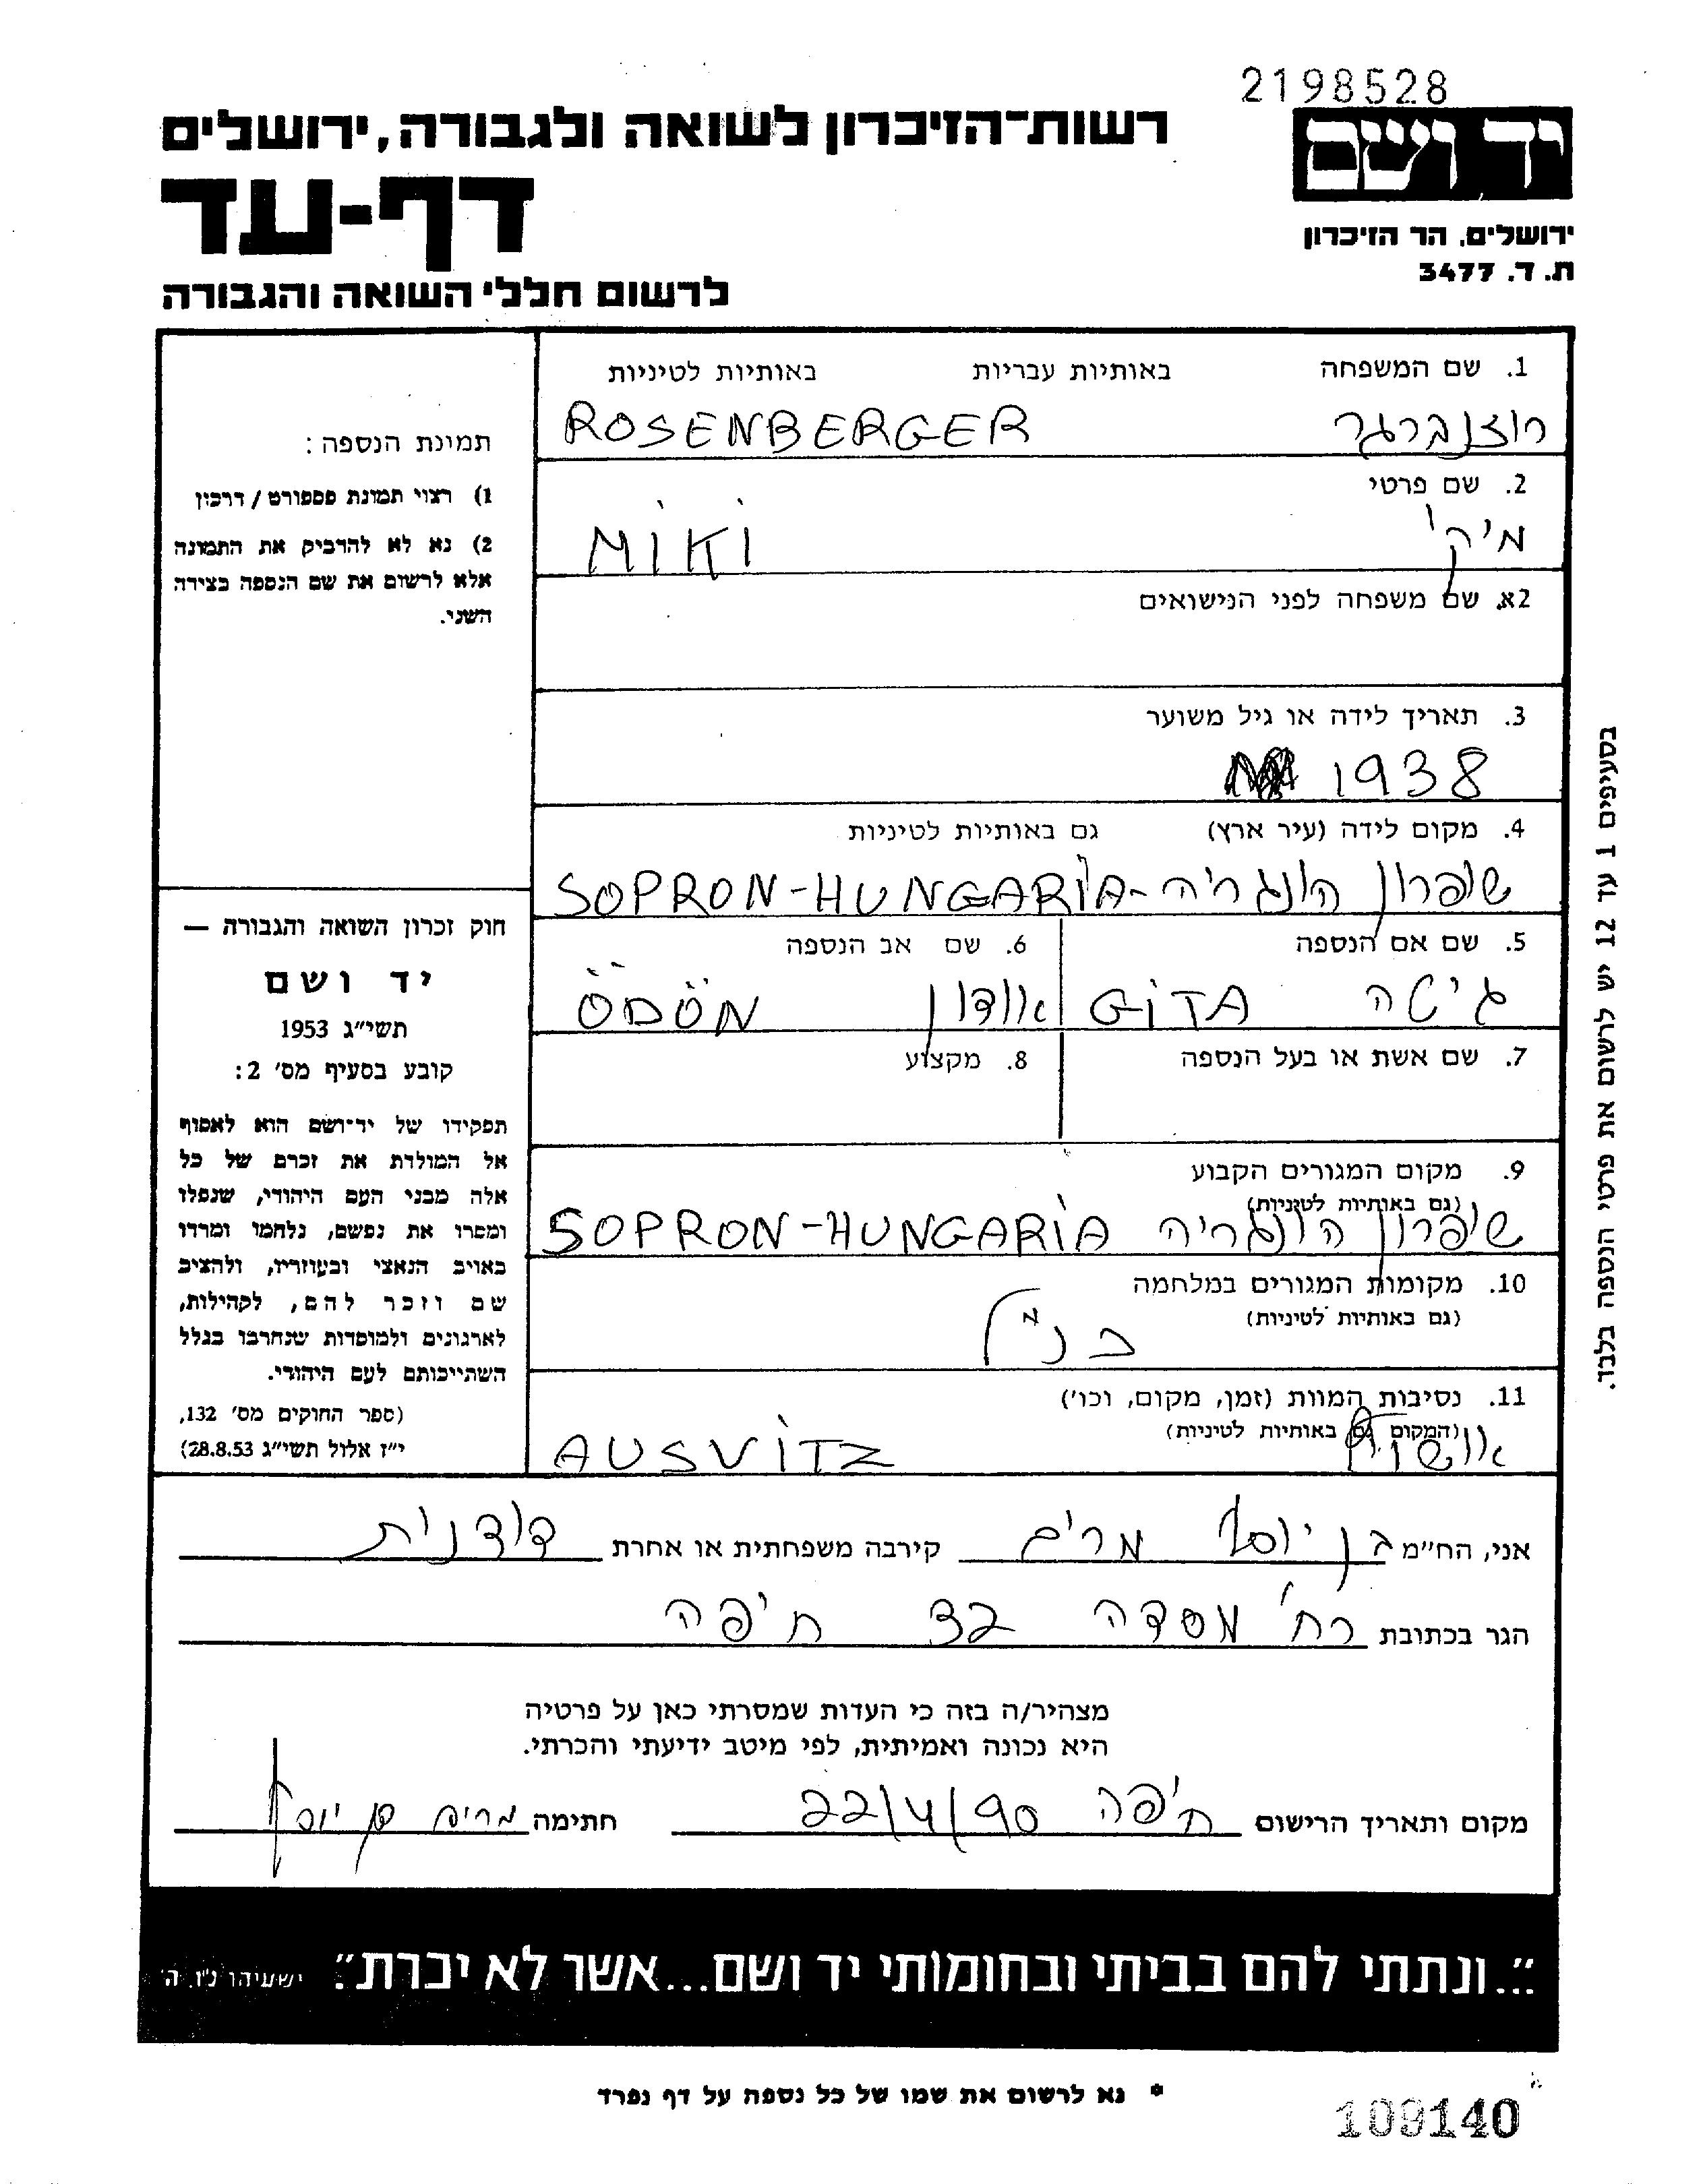 2198528
יד ושם
רשות־הזיכרון לשואה ולגבורה, ירושלים
דף-עד
ירושלים, הר הזיכרון
ת. ד. 3477
לרשום חללי השואה והגבורה
1. שם המשפחה באותיות עבריות באותיות לטיניות
רוזנברגר ROSENBERGER
2. שם פרטי
מיקי MIKI
2א. שם משפחה לפני הנישואים
3. תאריך לידה או גיל משוער
1938
4. מקום לידה (עיר ארץ) גם באותיות לטיניות
שופרון הונגריה - SOPRON-HUNGARIA
5. שם אם הנספה 6. שם אב הנספה
גיטה GITA אודון ÖDÖN
7. שם אשת או בעל הנספה 8. מקצוע
9. מקום המגורים הקבוע
(גם באותיות לטיניות)
שופרון הונגריה SOPRON-HUNGARIA
10. מקומות המגורים במלחמה
(גם באותיות לטיניות)
כנ"ל
11. נסיבות המוות (זמן, מקום, וכו')
(המקום גם באותיות לטיניות)
אושויץ AUSVITZ
תמונת הנספה:
1) רצוי תמונת פספורט / דרכון
2) נא לא להדביק את התמונה
אלא לרשום את שם הנספה בצידה
השני.
חוק זכרון השואה והגבורה —
יד ושם
תשי״ג 1953
קובע בסעיף מס׳ 2:
תפקידו של יד־ושם הוא לאסוף
אל המולדת את זכרם של כל
אלה מבני העם היהודי, שנפלו
ומסרו את נפשם, נלחמו ומרדו
באויב הנאצי ובעוזריו, ולהציב
שם וזכר להם, לקהילות,
לארגונים ולמוסדות שנחרבו בגלל
השתייכותם לעם היהודי.
(ספר החוקים מס׳ 132,
י״ז אלול תשי״ג 28.8.53)
בסעיפים 1 עד 12 יש לרשום את פרטי הנספה בלבד.
אני, הח״מ בן יוסף מרים קירבה משפחתית או אחרת דודנית
הגר בכתובת רח' מסדה 32 חיפה
מצהיר/ה בזה כי העדות שמסרתי כאן על פרטיה
היא נכונה ואמיתית, לפי מיטב ידיעתי והכרתי.
מקום ותאריך הרישום חיפה 22/4/90 חתימה מרים בן יוסף
"...ונתתי להם בביתי ובחומותי יד ושם...אשר לא יכרת". ישעיהו נ״ו, ה׳
* נא לרשום את שמו של כל נספה על דף נפרד
109140